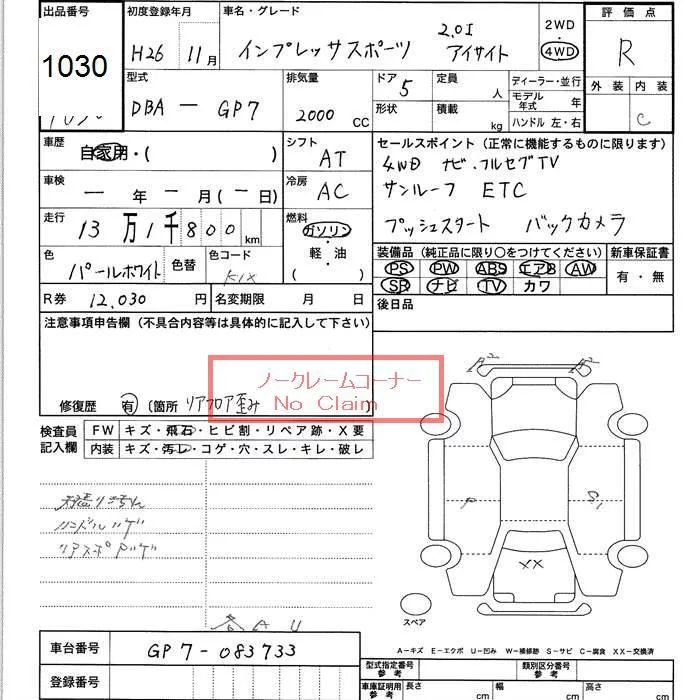 出品番号 初度登録年月 車名・グレード 2WD・4WD 評価点
1030 H26 11月 インプレッサスポーツ 2.0I アイサイト R
型式 DBA－GP7 排気量 2000 CC ドア 5 定員 人 ディーラー・並行 外装 内装 C
形状 積載 kg モデル年式 年 ハンドル 左・右
車歴 自家用・( ) シフト AT セールスポイント (正常に機能するものに限ります)
4WD ナビ・フルセグTV
車検 － 年 － 月 (－日) 冷房 AC サンルーフ ETC
走行 13万1千800km 燃料 ガソリン・軽油 ( ) プッシュスタート バックカメラ
色 パールホワイト 色替 色コード K1X 装備品 (純正品に限り○をつけてください) 新車保証書
PS PW ABS エアB AW 有・無
SR ナビ TV カワ
R券 12,030 円 名変期限 月 日 後日品
注意事項申告欄 (不具合内容等は具体的に記入して下さい)
ノークレームコーナー
No Claim
修復歴 有 (箇所 リアフロア歪み )
検査員記入欄 FW キズ・飛石・ヒビ割・リペア跡・X要
内装 キズ・汚レ・コゲ・穴・スレ・キレ・破レ
A2 A2
P S1
XX
ハンドルハゲ
A U
スペア
A－キズ E－エクボ U－凹み W－補修跡 S－サビ C－腐食 XX－交換済
車台番号 GP7-083733
登録番号
型式指定番号 参考 類別区分番号 参考
車庫証明用 参考 長さ cm 幅 cm 高さ cm